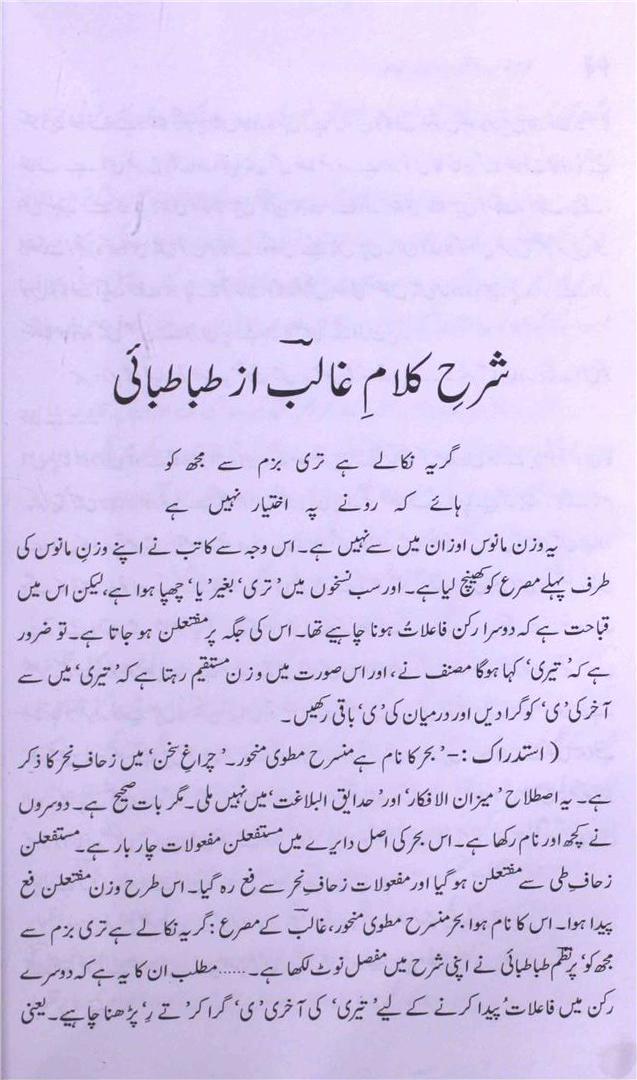 شرحِ کلامِ غالبؔ از طباطبائی
گریہ نکالے ہے تری بزم سے مجھ کو
ہائے کہ رونے پہ اختیار نہیں ہے
یہ وزن مانوس اوزان میں سے نہیں ہے۔ اس وجہ سے کاتب نے اپنے وزنِ مانوس کی
طرف پہلے مصرع کو کھینچ لیا ہے۔ اور سب نسخوں میں ’تری‘ بغیر ’یا‘ چھپا ہوا ہے، لیکن اس میں
قباحت ہے کہ دوسرا رکن فاعلاتُ ہونا چاہیے تھا۔ اس کی جگہ پر مفتعلن ہو جاتا ہے۔ تو ضرور
ہے کہ ’تیری‘ کہا ہوگا مصنف نے، اور اس صورت میں وزن مستقیم رہتا ہے کہ ’تیری‘ میں سے
آخر کی ’ی‘ کو گرا دیں اور درمیان کی ’ی‘ باقی رکھیں۔
( استدراک :– ’بحر کا نام ہے منسرح مطوی منحور۔ ’چراغِ سخن‘ میں زحافِ نحر کا ذکر
ہے۔ یہ اصطلاح ’میزان الافکار‘ اور ’حدایق البلاغت‘ میں نہیں ملی۔ مگر بات صحیح ہے۔ دوسروں
نے کچھ اور نام رکھا ہے۔ اس بحر کی اصل دایرے میں مستفعلن مفعولات چار بار ہے۔ مستفعلن
زحافِ طی سے مفتعلن ہو گیا اور مفعولات زحافِ نحر سے فع رہ گیا۔ اس طرح وزن مفتعلن فع
پیدا ہوا۔ اس کا نام ہوا بحر منسرح مطوی منحور، غالبؔ کے مصرع : گریہ نکالے ہے تری بزم سے
مجھ کو‘ پر نظم طباطبائی نے اپنی شرح میں مفصل نوٹ لکھا ہے۔...... مطلب ان کا یہ ہے کہ دوسرے
رکن میں فاعلاتُ پیدا کرنے کے لیے ’تیری‘ کی آخری ’ی‘ گرا کر ’تے رِ‘ پڑھنا چاہیے۔ یعنی